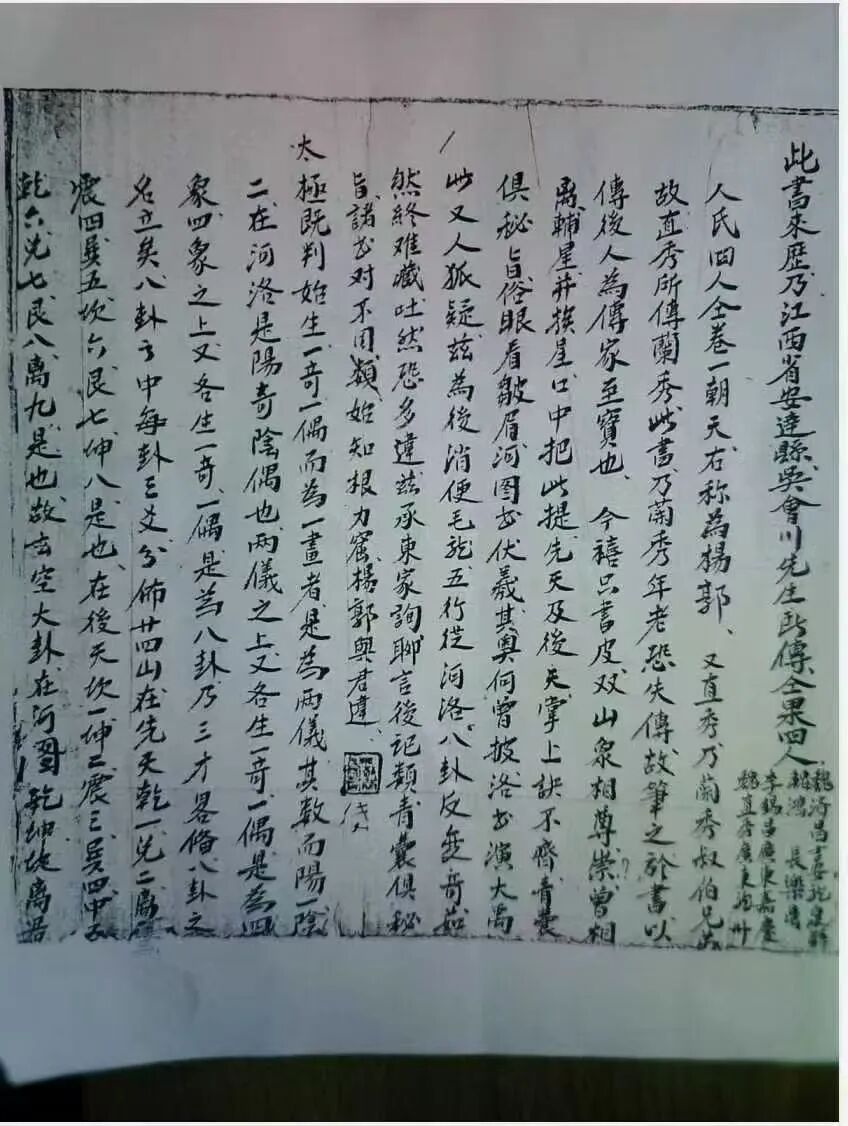 此書來歷乃江西省安遠縣吳會川先生所傳全業四人
人氏四人全卷一朝天右称為楊郭、又直秀乃蘭秀叔伯兄弟
故直秀所傳蘭秀此書乃蘭秀年老恐失傳故筆之於書以
傳後人為傳家至寶也、今禧只書皮双山衆相尊崇曾相
禹輔星并挨星口中把此提先天及後天掌上訣不齊青囊
俱秘旨俗眼看皺眉河图出伏羲其奥何曾披洛出演大禹
此又人狐疑兹為後消便毛龍五行從河洛八卦反無奇茹
然終难藏吐然恐多違兹承東家詢聊言後記類青囊俱秘
旨諸书对不用類始知根力窩楊郭與君違、
太極既判始生一奇一偶而為一畫者是為两儀其数而陽一陰
二在河洛是陽奇陰偶也两儀之上又各生一奇一偶是為四
象四象之上又各生一奇一偶是為八卦乃三才畧俻八卦之
名立矣八卦之中每卦三爻分佈廿四山在先天乾一兑二离
震四巽五坎六艮七坤八是也、在後天坎一坤二震三巽四中五
乾六兑七艮八离九是也故玄空大卦在河图乾坤坎离居